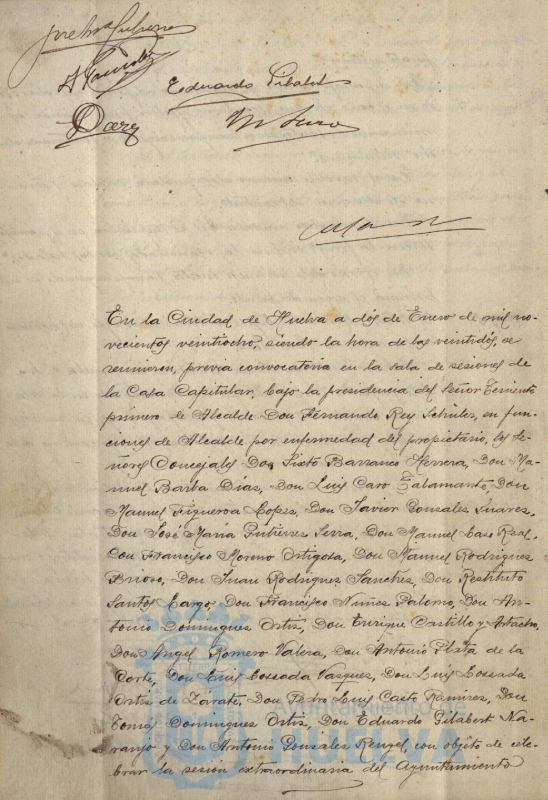 Eduardo Gilabert
En la Ciudad de Huelva a dós de Enero de mil no-
vecientos veintiocho, siendo la hora de las veintidós, se
reunieron, previa convocatoria en la sala de sesiones de
la Casa Capitular, bajo la presidencia del Señor Teniente
primero de Alcalde Don Fernando Rey Schulez, en fun-
ciones de Alcalde por enfermedad del propietario, los Se-
ñores Concejales Don Sixto Barranco Herrera, Don Ma-
nuel Barba Días, Don Luis Caro Talamante, Don
Manuel Figueroa Lopez, Don Javier Gonzales Suares,
Don José María Gutiérrez Serra, Don Manuel Laso Real,
Don Francisco Moreno Ortigosa, Don Manuel Rodriguez
Brioso, Don Juan Rodriguez Sanchez, Don Restituto
Santos Largo, Don Francisco Nuñez Palomo, Don An-
tonio Dominguez Ortiz, Don Enrique Castillo y
Don Angel Romero Valera, Don Antonio Plata de la
Corte, Don Luis Lossada Vasquez, Don Luis Lossada
Ortiz de Zarate, Don Pedro Luis Casto Ramirez, Don
Tomás Dominguez Ortiz, Don Eduardo Gilabert Na-
ranjo y Don Antonio Gonzales Rengel, con objeto de cele-
brar la sesión extraordinaria del Ayuntamiento
Ayuntamiento de
HUELVA